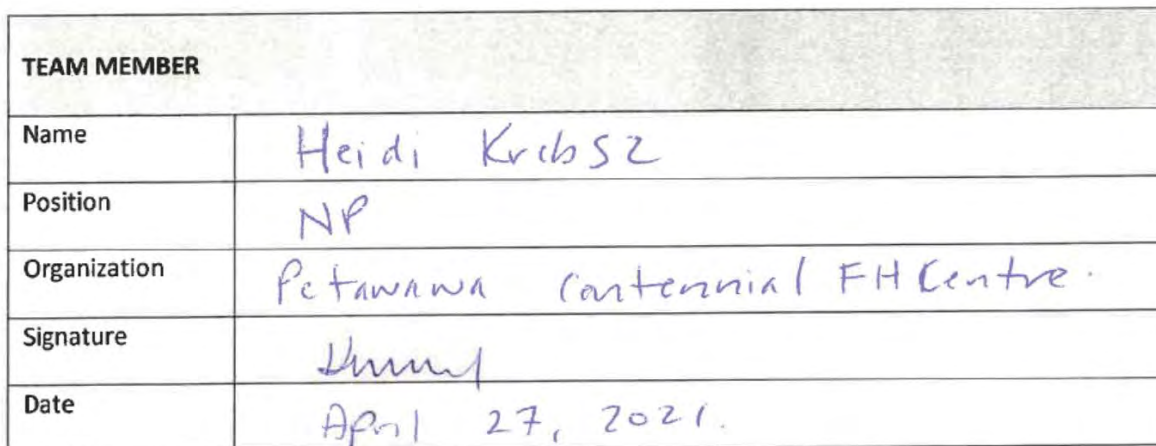 TEAM MEMBER
Name Heidi Krebsz
Position NP
Organization Petawawa Centennial FH Centre.
Signature
Date April 27, 2021.